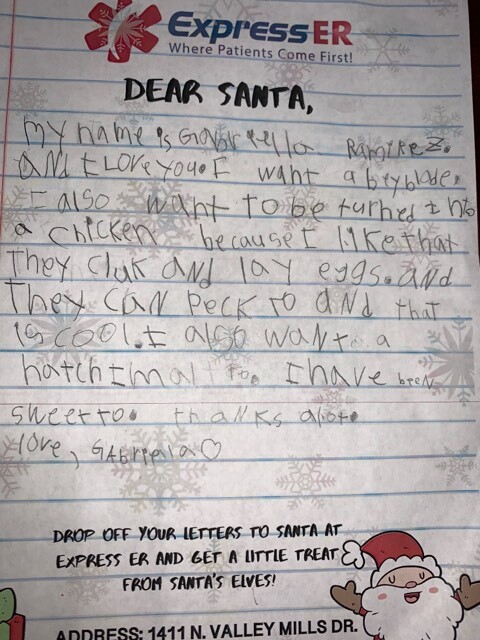 ExpressER
Where Patients Come First!
DEAR SANTA,
My name is Gabriella Ramirez.
AND I LOVE you. I want a beyblade.
I also want to be turned Into
a chicken because I like that
They cluk AND lay eggs. AND
They CAN Peck to AND that
is cool. I also want a
hatchImal to. I have been
sweet to. thanks alot.
love, GAbriela♡
DROP OFF YOUR LETTERS TO SANTA AT
EXPRESS ER AND GET A LITTLE TREAT
FROM SANTA'S ELVES!
ADDRESS: 1411 N. VALLEY MILLS DR.